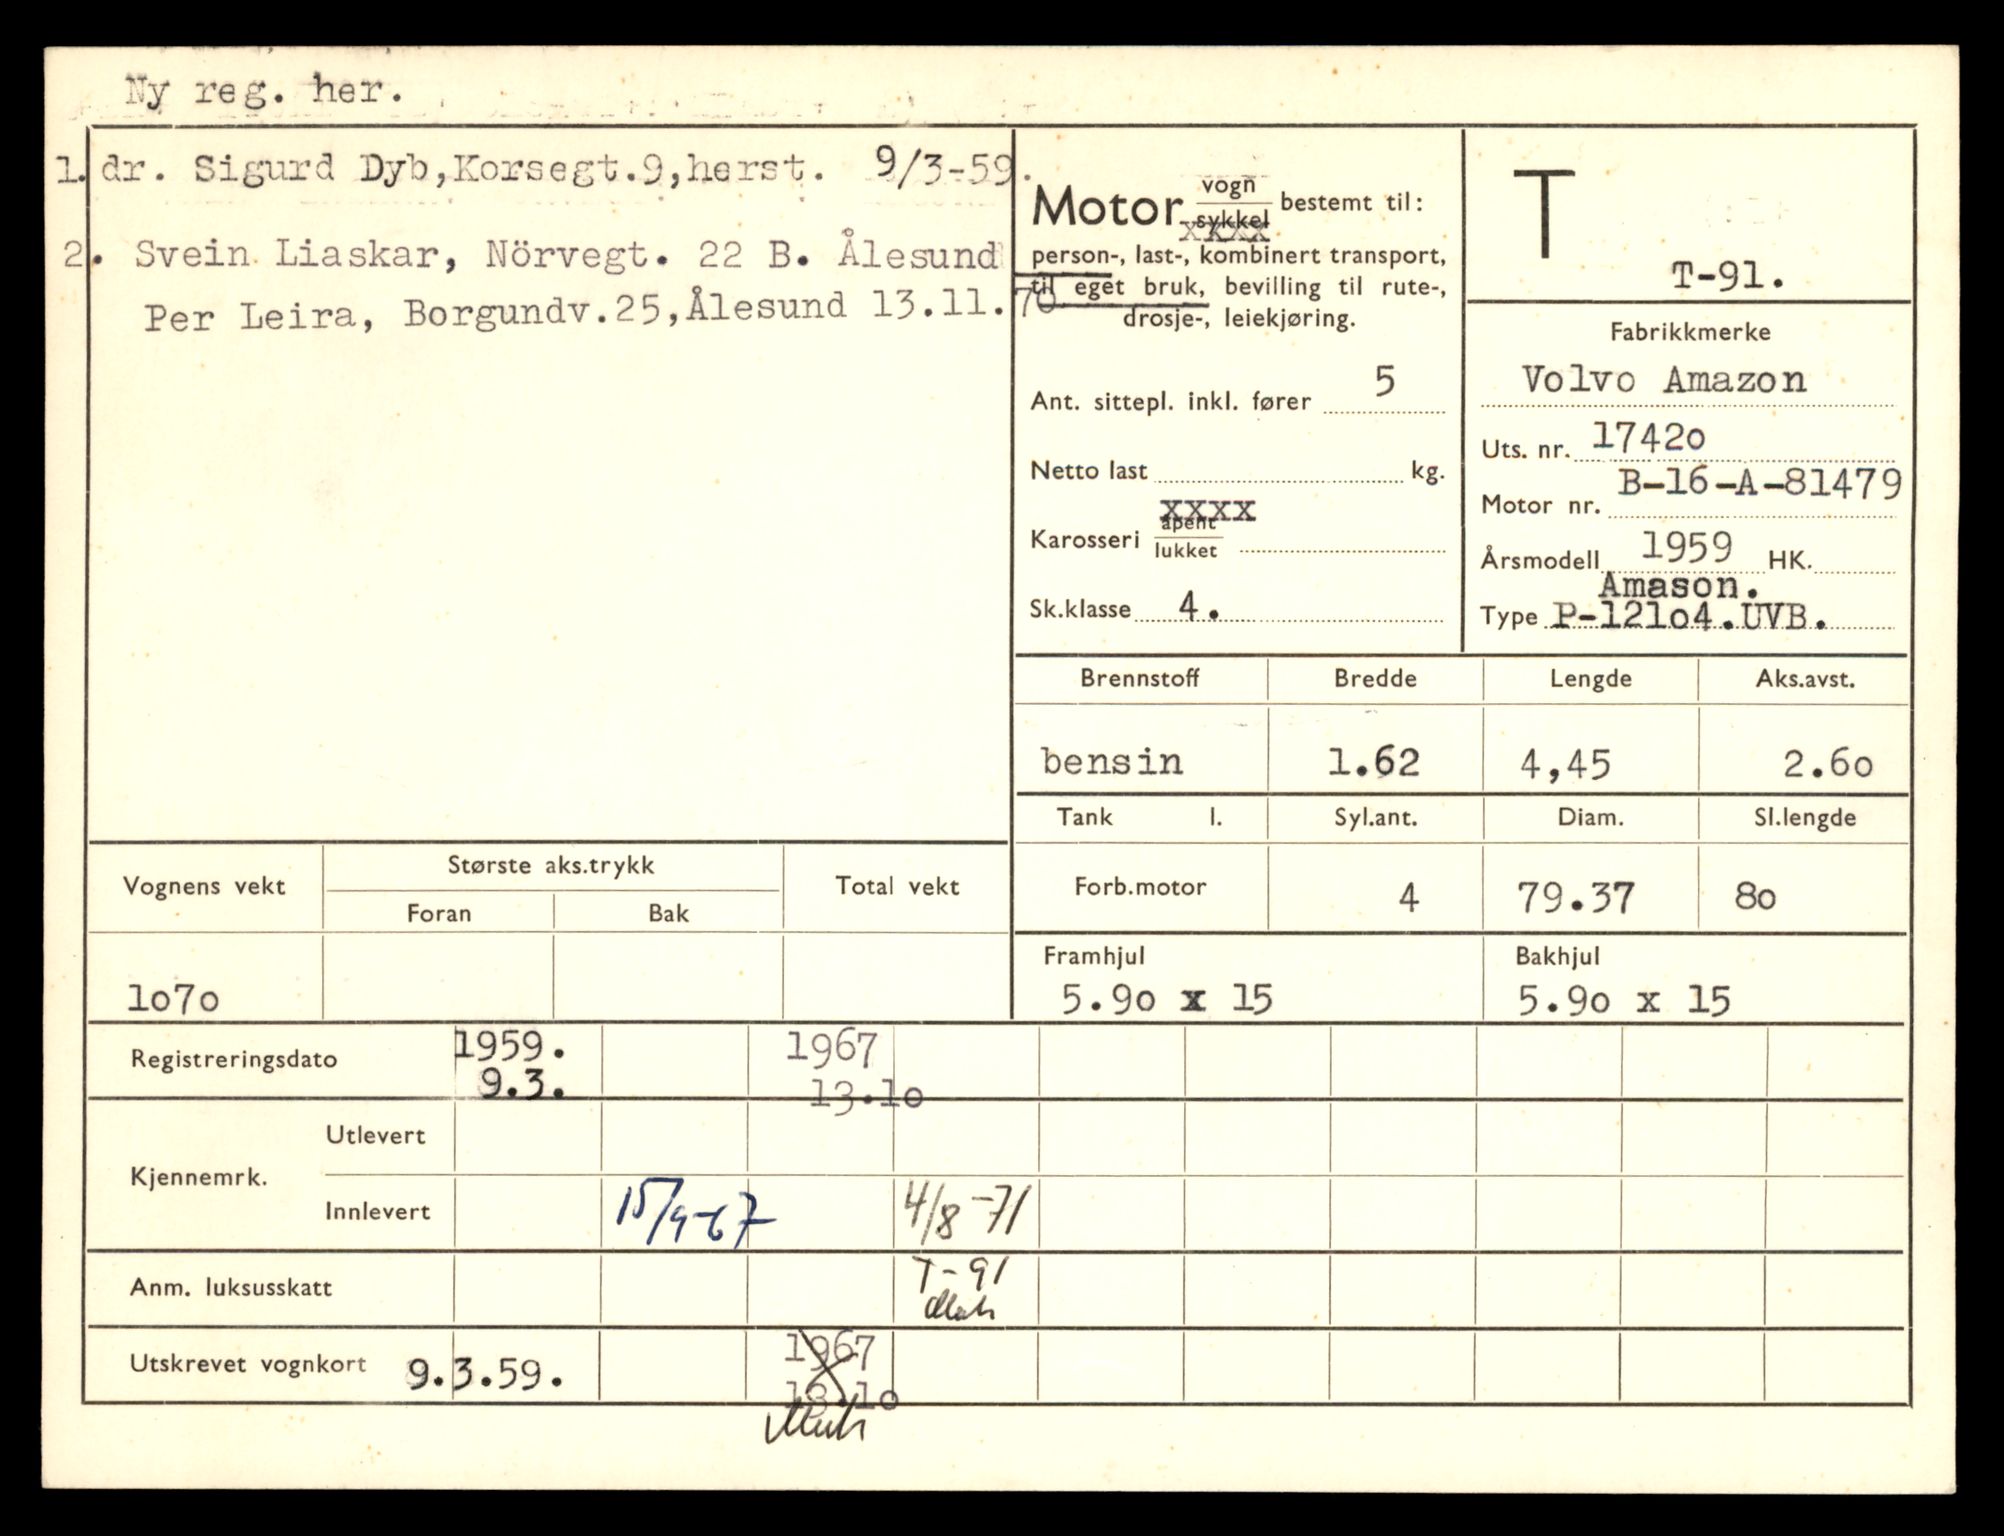 Ny reg. her.
1. dr. Sigurd Dyb,Korsegt.9,herst. 9/3-59.
2. Svein Liaskar, Nörvegt. 22 B. Ålesund
Per Leira, Borgundv.25,Ålesund 13.11.70
Motor vogn
sykkel bestemt til:
xxxx
person-, last-, kombinert transport,
til eget bruk, bevilling til rute-,
drosje-, leiekjøring.
Ant. sittepl. inkl. fører 5
Netto last kg.
xxxx
Karosseri åpent
lukket
Sk.klasse 4.
T
T-91.
Fabrikkmerke
Volvo Amazon
Uts. nr. 1742o
Motor nr. B-16-A-81479
Årsmodell 1959 HK.
Amason.
Type P-121o4.UVB.
Brennstoff Bredde Lengde Aks.avst.
bensin 1.62 4,45 2.6o
Tank l. Syl.ant. Diam. Sl.lengde
Forb.motor 4 79.37 8o
Framhjul Bakhjul
5.9o x 15 5.9o x 15
Vognens vekt Største aks.trykk Total vekt
Foran Bak
1o7o
Registreringsdato 1959. 1967
9.3. 13.1o
Kjennemrk. Utlevert
Innlevert 15/9-67 4/8-71
Anm. luksusskatt T-91
Utskrevet vognkort 9.3.59. 1967
13.1o